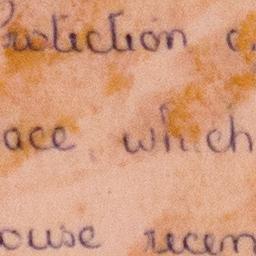 Protection
ace which
ouse recen